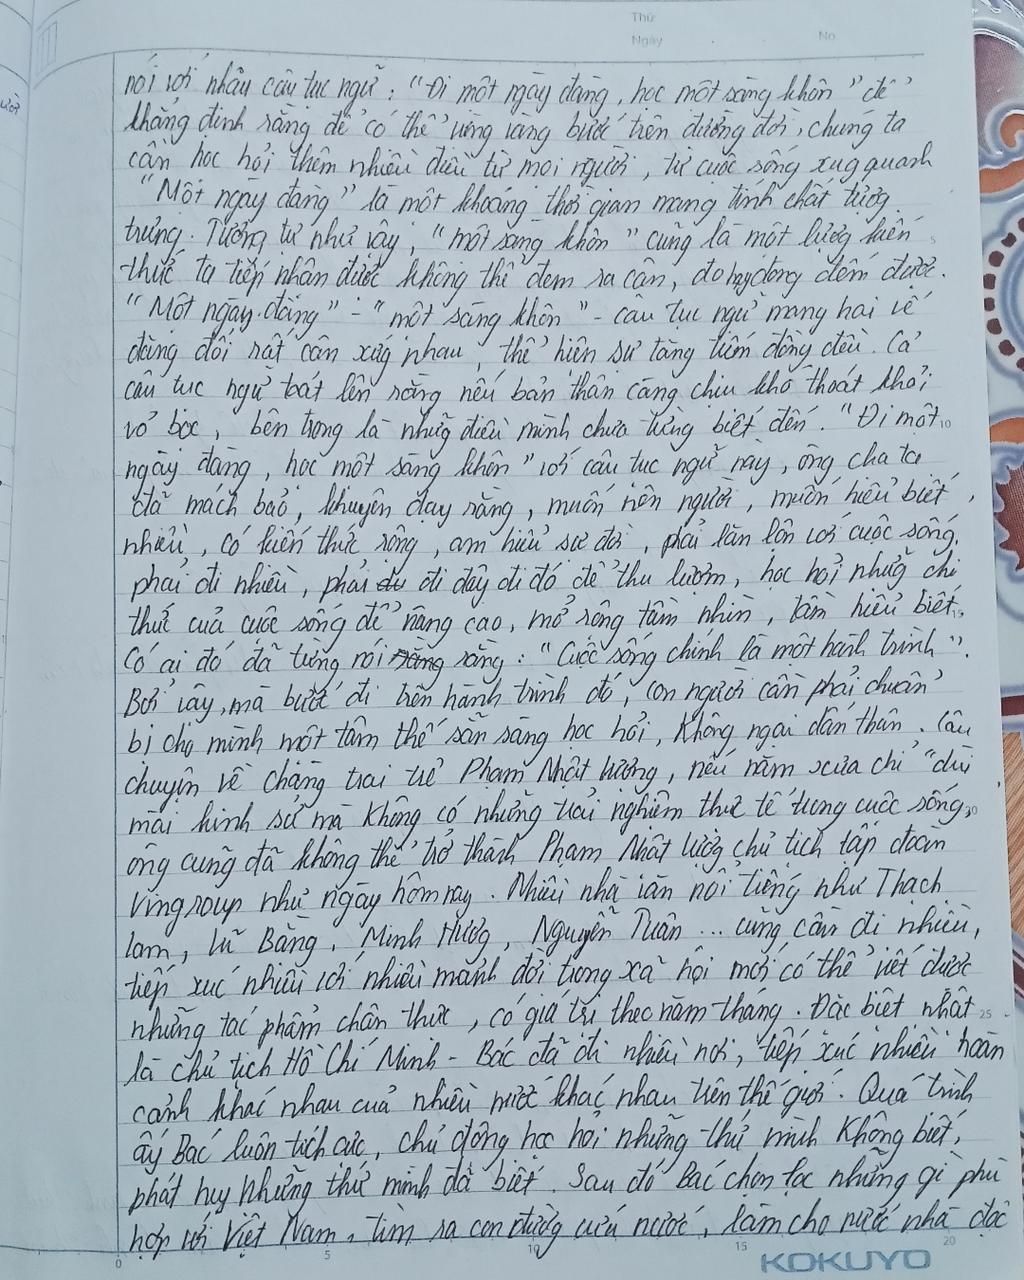 Thứ
Ngày No
nói với nhau câu tục ngữ : "Đi một ngày đàng, học một sàng khôn" để
khẳng định rằng để có thể vững vàng bước trên đường đời, chúng ta
cần học hỏi thêm nhiều điều từ mọi người, từ cuộc sống xug quanh
"Một ngày đàng" là một khoảng thời gian mang tính chất tượg
trưng. Tương tự như vậy, "một sàng khôn" cũng là một lượg kiến
thức ta tiếp nhận được không thể đem ra cân, đo hay đong đếm được.
"Một ngày đàng" - "một sàng khôn" - câu tục ngữ mang hai vế
đăng đối rất cân xứg nhau, thể hiện sự tăng tiến đồng đều. Cả
câu tục ngữ bật lên rằng nếu bản thân càng chịu khó thoát khỏi
vỏ bọc, bên trong là nhữg điều mình chưa từng biết đến. "Đi một 10
ngày đàng, học một sàng khôn" với câu tục ngữ này, ông cha ta
đã mách bảo, khuyên dạy rằng, muốn nên người, muốn hiểu biết
nhiều, có kiến thức rộng, am hiểu sự đời, phải lăn lộn với cuộc sống,
phải đi nhiều, phải đi đây đi đó để thu lượm, học hỏi nhữg chi
thức của cuộc sống để nâng cao, mở rộng tầm nhìn, tầm hiểu biết.
Có ai đó đã từng nói rằng : "Cuộc sống chính là một hành trình".
Bởi vậy, mà bước đi trên hành trình đó, con người cần phải chuẩn
bị cho mình một tâm thế sẵn sàng học hỏi, Không ngại dấn thân. Câu
chuyện về chàng trai trẻ Phạm Nhật Vượng, nếu năm xưa chỉ "dùi
mài kinh sử mà Không có những trải nghiệm thực tế trong cuộc sống, 20
ông cũng đã không thể trở thành Phạm Nhật Vượg chủ tịch tập đoàn
Vingroup như ngày hôm nay. Nhiều nhà văn nổi tiếng như Thạch
Lam, Vũ Bằng, Minh Hươg, Nguyễn Tuân ... cũng cần đi nhiều,
tiếp xúc nhiều với nhiều mảnh đời trong xã hội mới có thể viết được
những tác phẩm chân thực, có giá trị theo năm tháng. Đặc biệt nhất 25
là chủ tịch Hồ Chí Minh - Bác đã đi nhiều nơi, tiếp xúc nhiều hoàn
cảnh khác nhau của nhiều nước khác nhau trên thế giới. Quá trình
ấy Bác luôn tích cực, chủ động học hỏi những thứ mình Không biết,
phát huy những thứ mình đã biết. Sau đó Bác chọn lọc những gì phù
hợp với Việt Nam, tìm ra con đườg cứu nước, làm cho nước nhà độc
0 5 10 15 20
KOKUYO